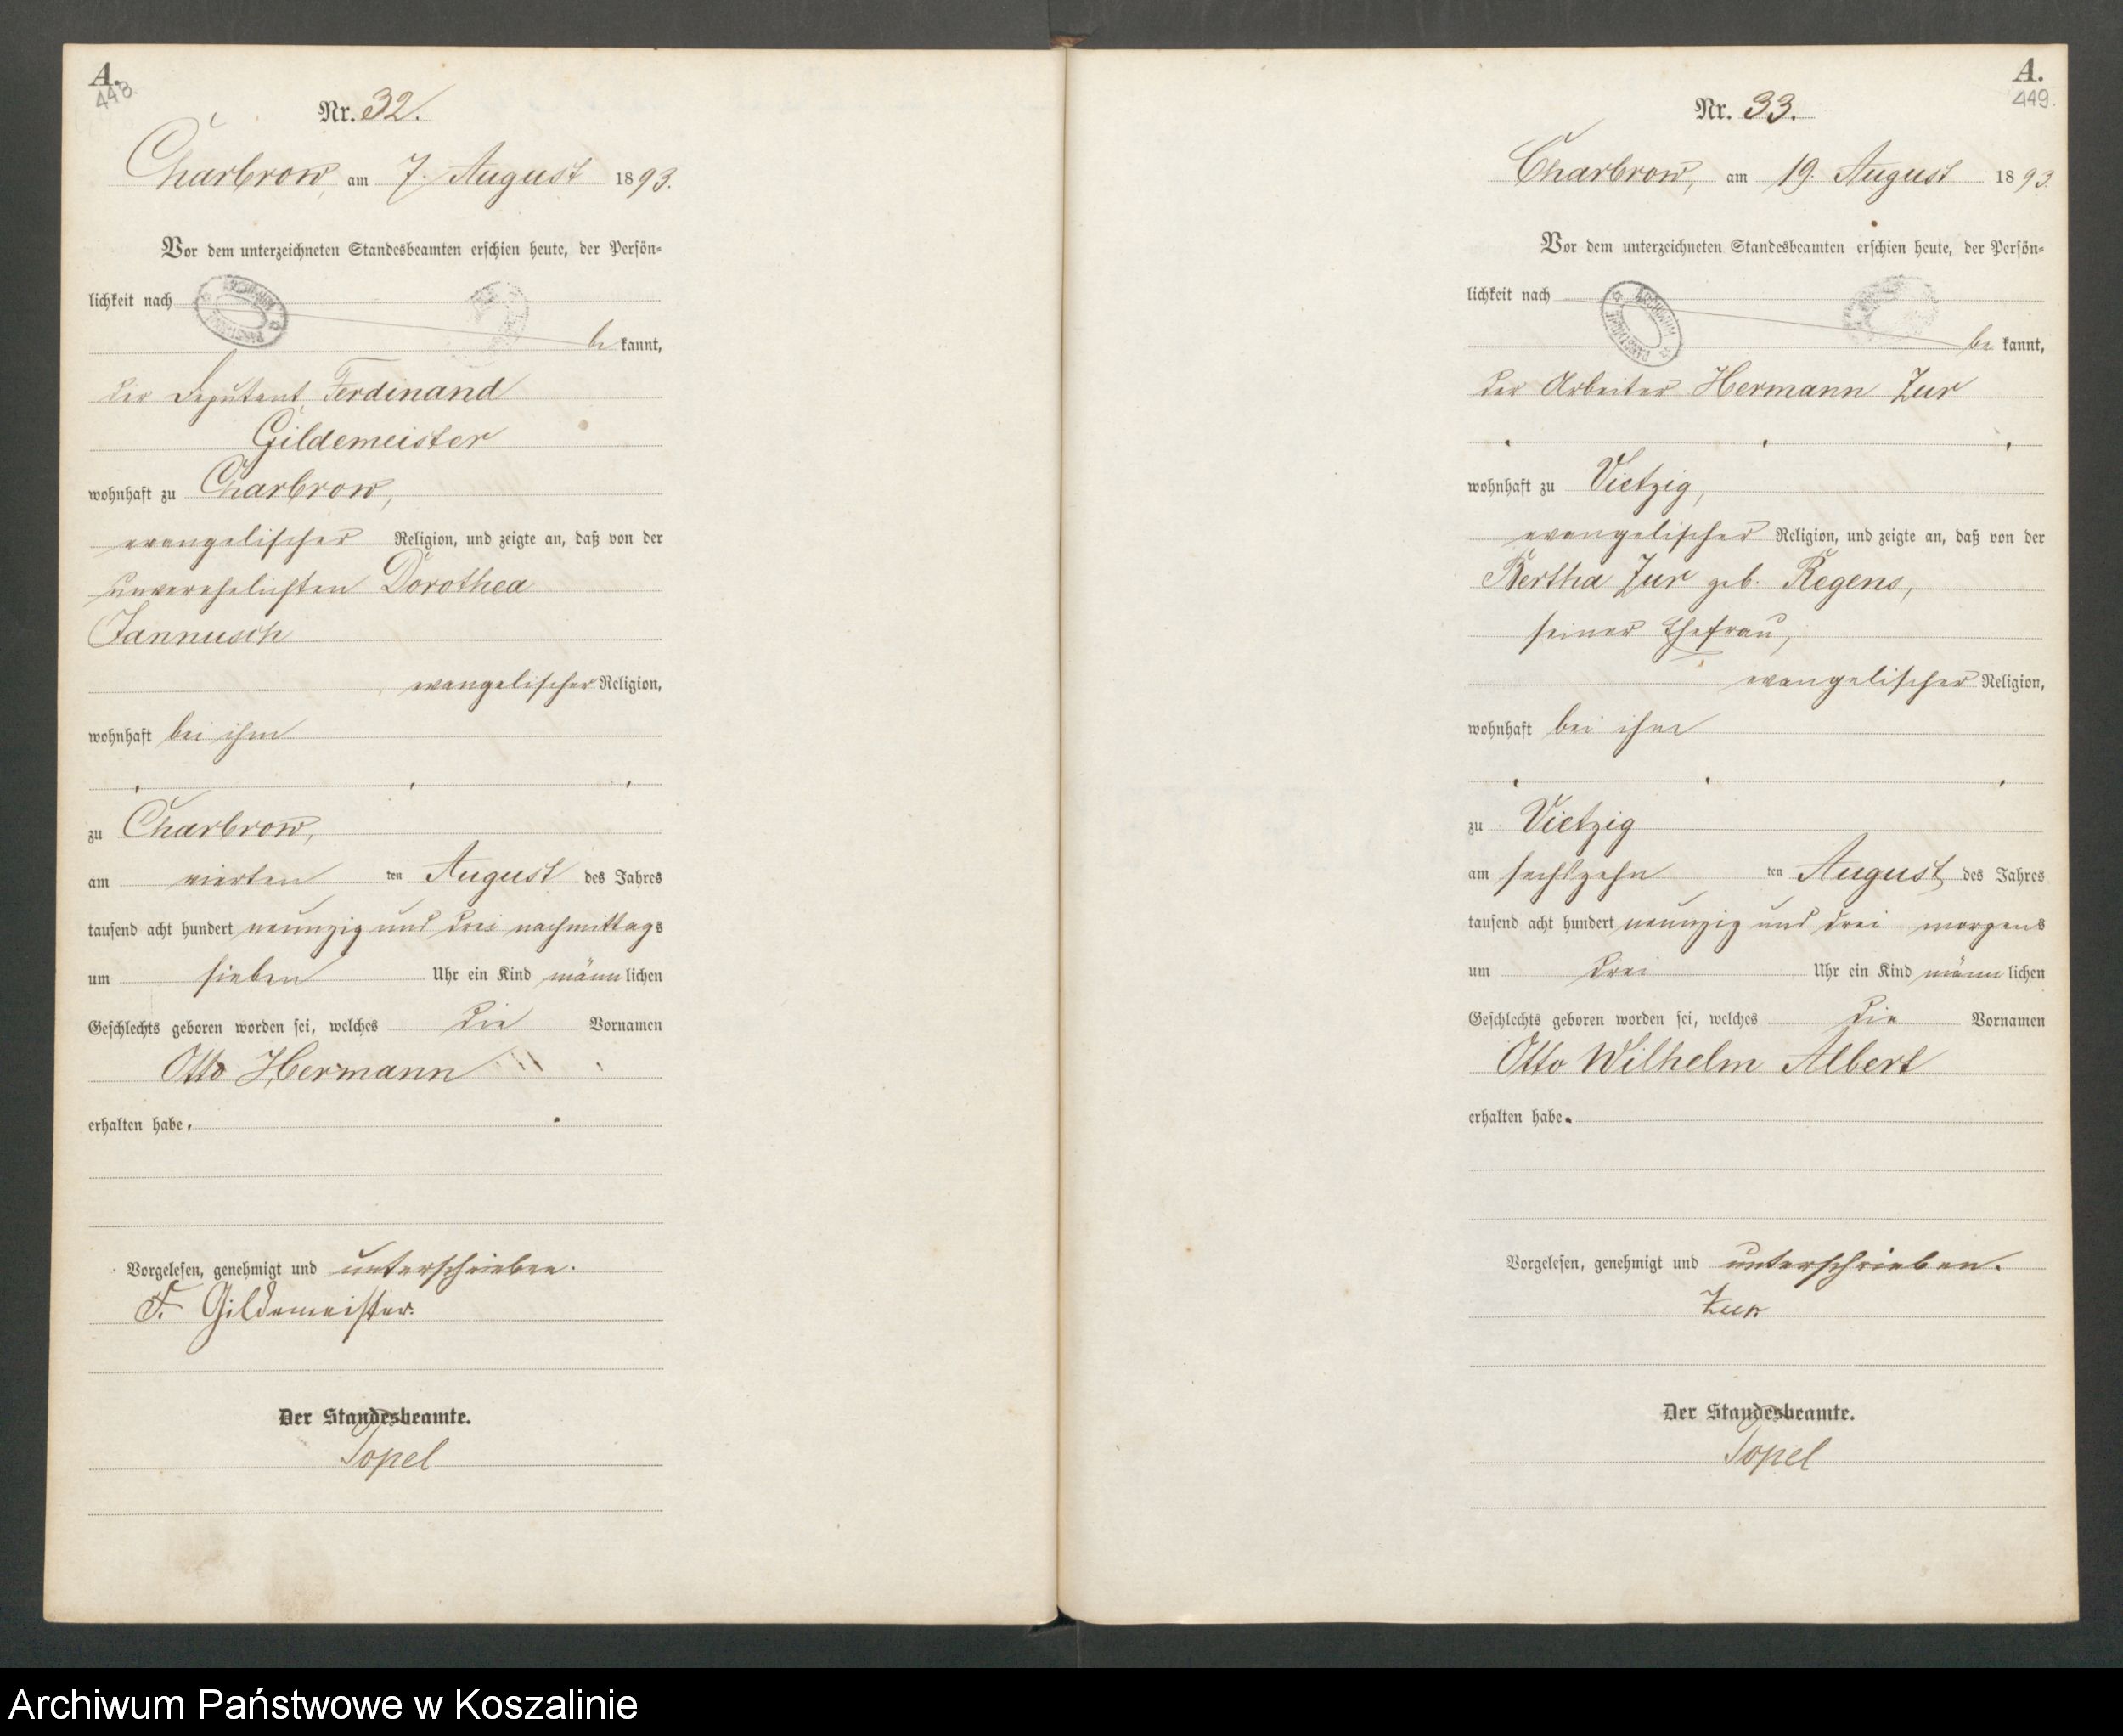 A.
448.
Nr. 32.
Charbrow, am 7. August 1893.
Vor dem unterzeichneten Standesbeamten erschien heute, der Persön-
lichkeit nach
be kannt,
der Deputant Ferdinand
Gildemeister
wohnhaft zu Charbrow,
evangelischer Religion, und zeigte an, daß von der
unverehelichten Dorothea
Jannusch
evangelischer Religion,
wohnhaft bei ihm
zu Charbrow,
am vierten ten August des Jahres
tausend acht hundert neunzig und drei nachmittags
um sieben Uhr ein Kind männ lichen
Geschlechts geboren worden sei, welches die Vornamen
Otto Hermann
erhalten habe.
Vorgelesen, genehmigt und unterschrieben.
F. Gildemeister.
Der Standesbeamte.
Topel
A.
449.
Nr. 33.
Charbrow, am 19. August 1893.
Vor dem unterzeichneten Standesbeamten erschien heute, der Persön-
lichkeit nach
be kannt,
der Arbeiter Hermann Zur
wohnhaft zu Vietzig,
evangelischer Religion, und zeigte an, daß von der
Bertha Zur geb. Regens,
seiner Ehefrau,
evangelischer Religion,
wohnhaft bei ihm
zu Vietzig
am sechszehn ten August des Jahres
tausend acht hundert neunzig und drei morgens
um drei Uhr ein Kind männ lichen
Geschlechts geboren worden sei, welches die Vornamen
Otto Wilhelm Albert
erhalten habe.
Vorgelesen, genehmigt und unterschrieben.
Zur
Der Standesbeamte.
Topel
Archiwum Państwowe w Koszalinie